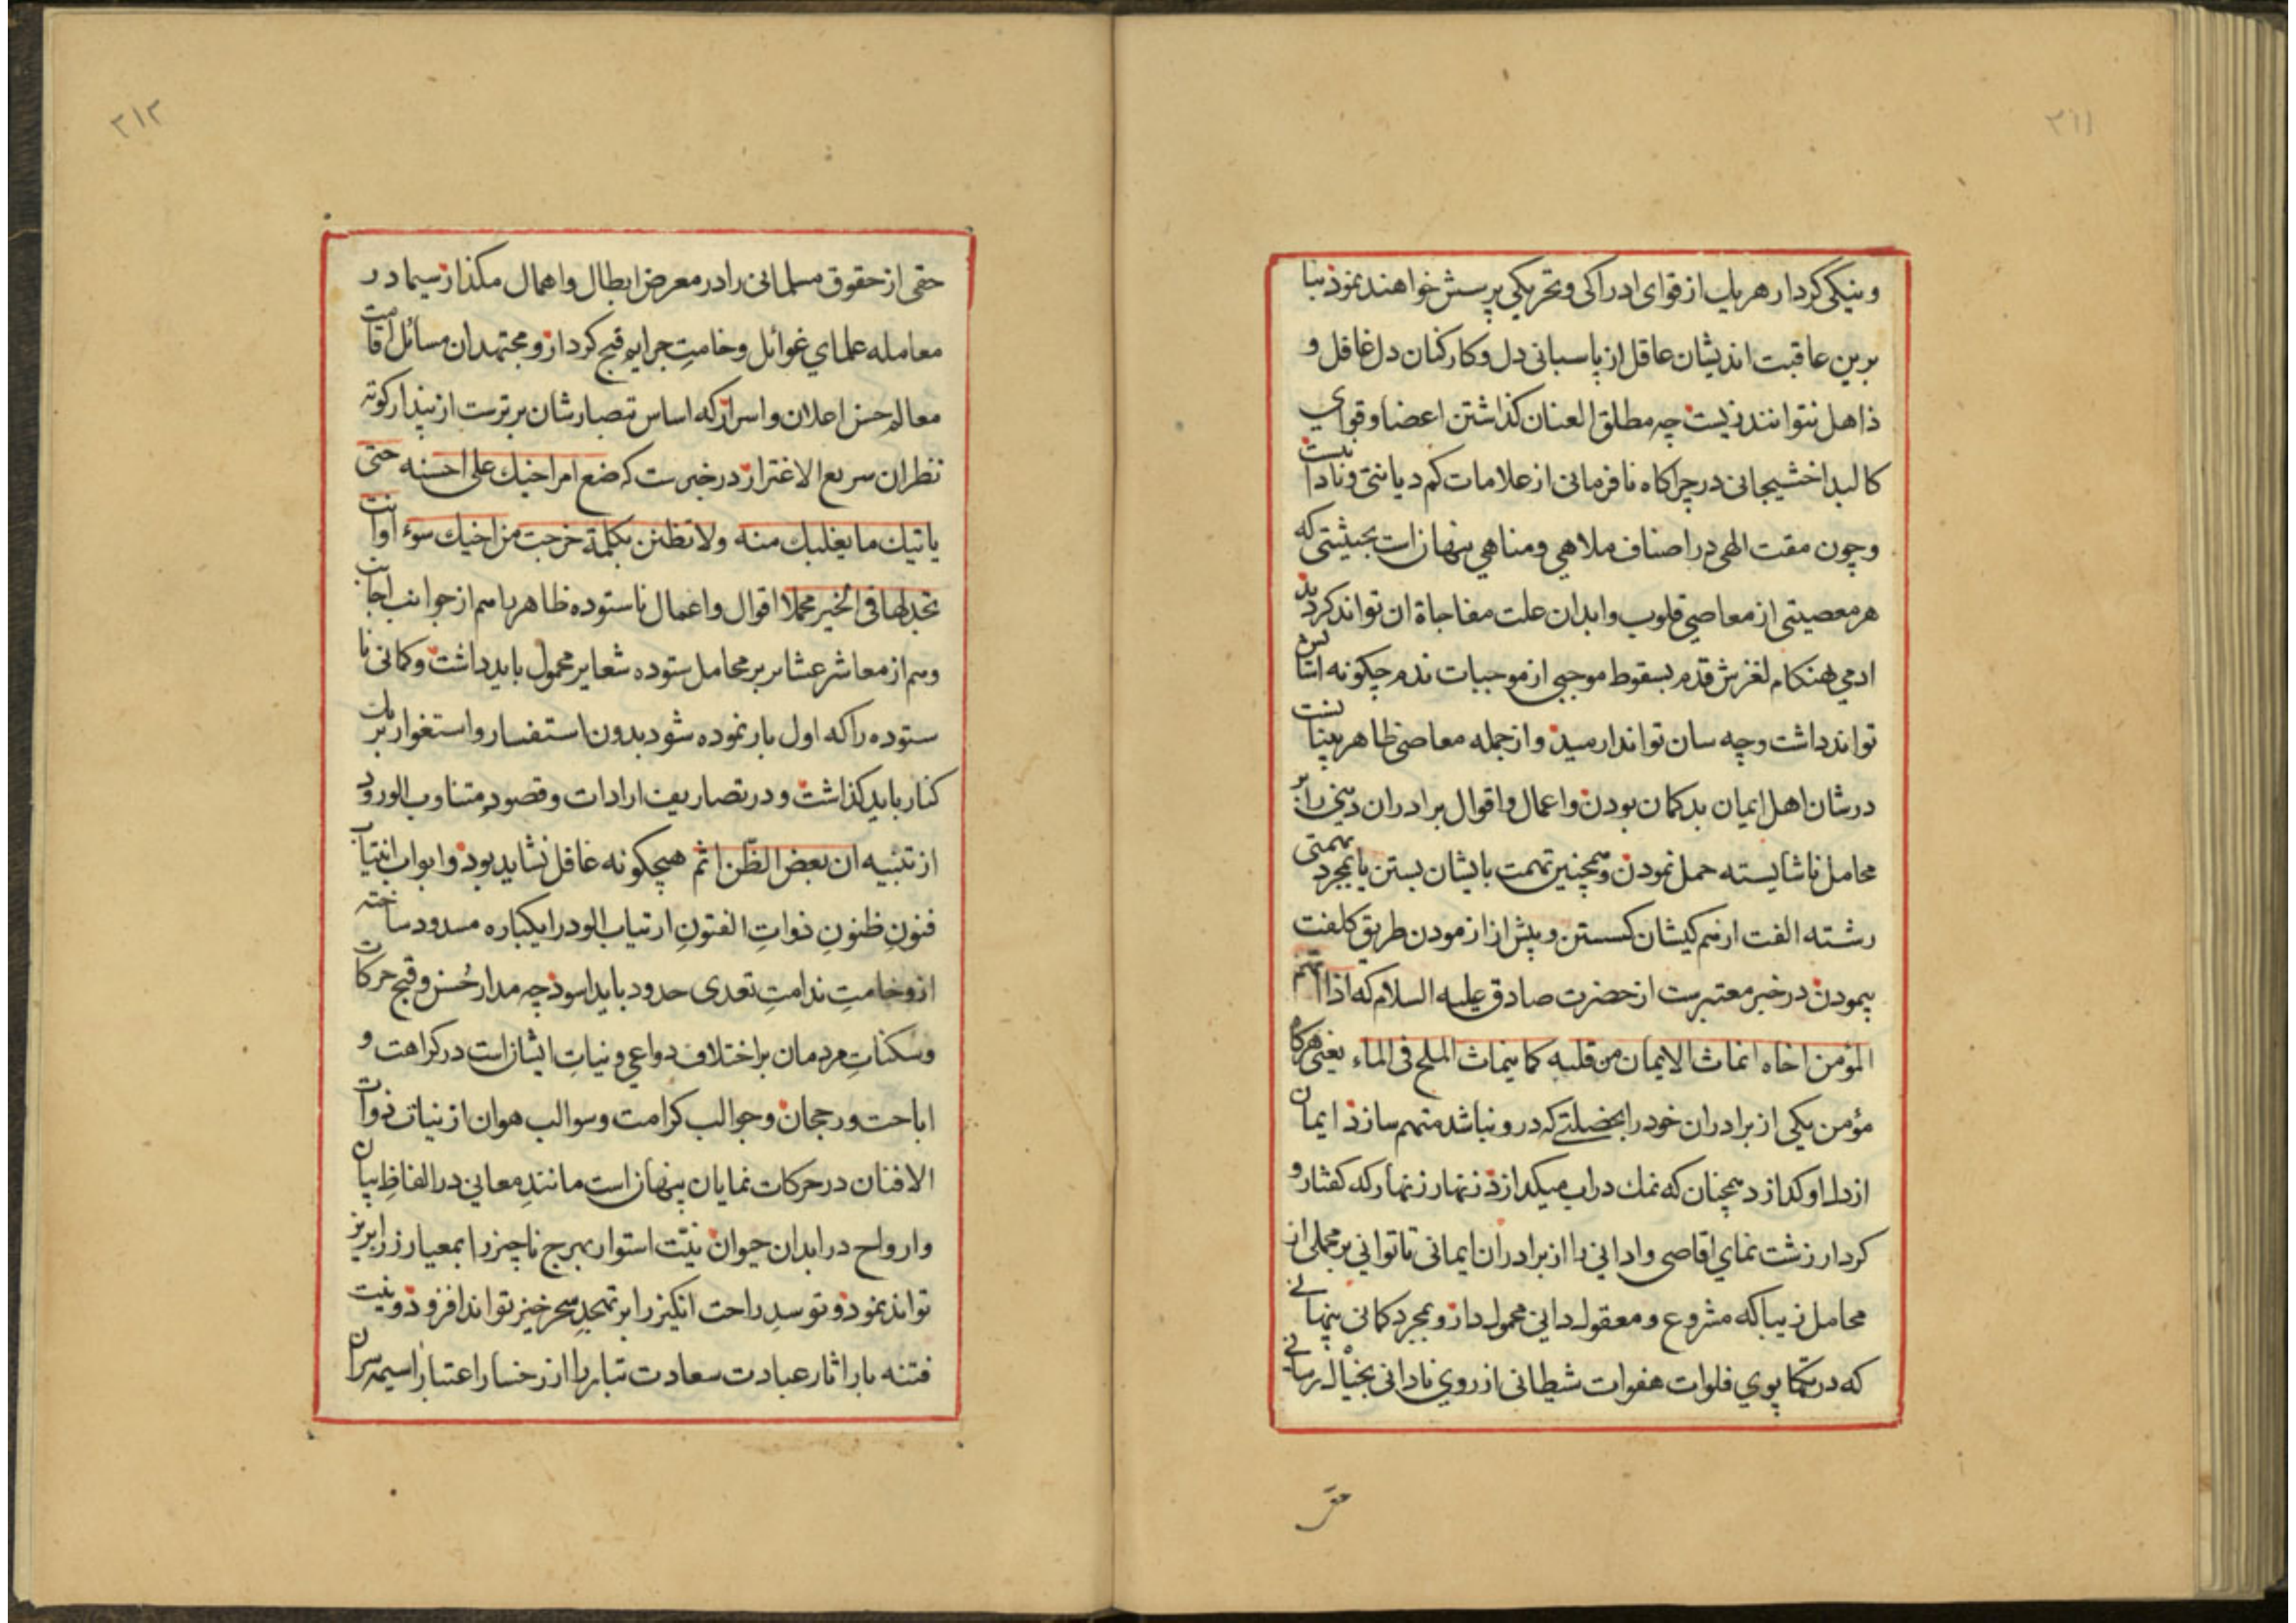 ۳۱۱
ونیکی کردار هریك از قوای ادراکی وتحریکی پرسش خواهند نمود بنا
برین عاقبت اندیشان عاقل از پاسبانی دل وکارکنان دل غافل و
ذاهل نتوانند زیست چه مطلق العنان کذاشتن اعضا وقوای
کالبد اخشیجانی در چراکاه نافرمانی از علامات کم دیانتی ونادانیست
وچون مقت الهی در اصناف ملاهی ومناهی پنهانست بحیثیتی که
هر معصیتی از معاصی قلوب وابدان علت مفاجاة ان تواند کردید
ادمی هنکام لغزش قدم بسقوط موجبی از موجبات ندم چکونه
تواند داشت وچه سان تواند ارمید واز جمله معاصی ظاهر
درشان اهل ایمان بدکمان بودن واعمال واقوال برادران دینی را بر
محامل ناشایسته حمل نمودن وهمچنین تهمت بایشان بستن یا بمجرد تهمتی
رشته الفت از هم کیشان کسستن وپیش از ازمودن طریق کلفت
پیمودن در خبر معتبرست از حضرت صادق علیه السلام که اذا اتهم
المؤمن اخاه انماث الایمان من قلبه کما ینماث الملح فی الماء یعنی هرکاه
مؤمن یکی از برادران خود را بخصلتی که درو نباشد متهم سازد ایمان
از دل او کدازد همچنان که نمك در اب میکدازد زنهار زنهار که کفتار و
کردار زشت نمای اقاصی وادانی را از برادران ایمانی تا توانی بر محملی از
محامل زیبا که مشروع ومعقول دانی محمول دار وبمجرد کمانی پنهانی
که در تکاپوی فلوات هفوات شیطانی از روی نادانی بخیال رسانی
حقی
۳۱۲
حقی از حقوق مسلمانی را در معرض ابطال واهمال مکذار سیما در
معامله علمای غوائل وخامتِ جرایم قبح کردار ومجتهدان مسائل اقامت
معالم حسن اعلان واسرار که اساس تبصارشان برترست از پندار کوته
نظران سریع الاغترار در خبرست که ضع امر اخیك علی احسنه حتی
یاتیك ما یغلبك منه ولا تظنن بکلمة خرجت من اخیك سوء اوانت
تجد لها فی الخیر محملا اقوال واعمال ناستوده ظاهر باسم از جوانب اجانب
وسم از معاشر عشایر بر محامل ستوده شعایر محمول باید داشت وکمانی نا
ستوده را که اول بار نموده شود بدون استفسار واستغوار بر یك
کنار باید کذاشت ودر تصاریف ارادات وقصودِ متناوب الورود
از تنبیه ان بعض الظن اثم هیچکونه غافل نشاید بود وابواب انتیاب
فنونِ ظنونِ ذواتِ الفتونِ ارتیاب الود را یکباره مسدود ساخته
از وخامتِ ندامتِ تعدی حدود باید اسود چه مدار حُسن وقبح حرکات
وسکناتِ مردمان بر اختلاف دواعی ونیاتِ ایشانست در کراهت و
اباحت ورجحان وجوالب کرامت وسوالب هوان از نیات ذوات
الافنان در حرکات نمایان پنهانست مانندِ معانی در الفاظِ بیان
وارواح در ابدان حیوان نیّت استوار بهرج ناچیز را بمعیار زر ابریز
تواند نمود وتوسدِ راحت انکیز را بر تهجدِ سحرخیز تواند افزود ونیت
فتنه بار اثار عبادت سعادت تبار را از رخسار اعتبار